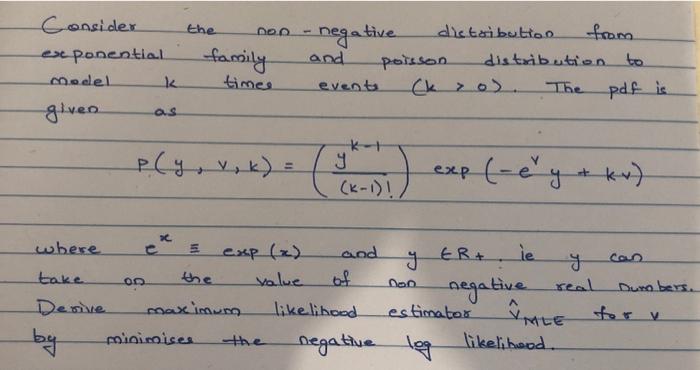 Consider the non-negative distribution from
exponential family and poisson distribution to
model k times events (k > 0). The pdf is
given as
P(y, v, k) = (y^{k-1} / (k-1)!) exp(-e^v y + kv)
where e^x ≡ exp(x) and y ∈ R+. ie y can
take on the value of non negative real numbers.
Derive maximum likelihood estimator v̂_MLE for v
by minimises the negative log likelihood.